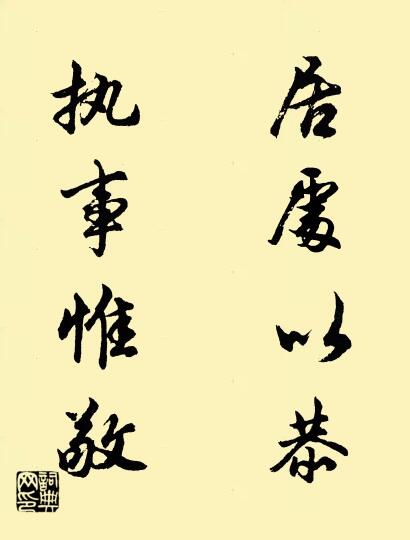 居處以恭
执事惟敬
詞典网印